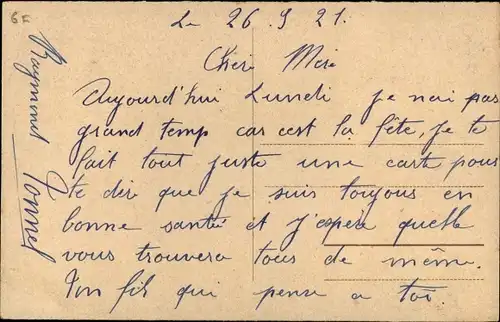 6F
Le 26 9 21.
Chère Mère
Aujourd'hui Lundi je nai pas
grand temp car cest la fête, je te
fait tout juste une carte pour
te dire que je suis toujous en
bonne santé et j'espère quelle
vous trouvera tous de même.
Ton fils qui pense a toi.
Raymond